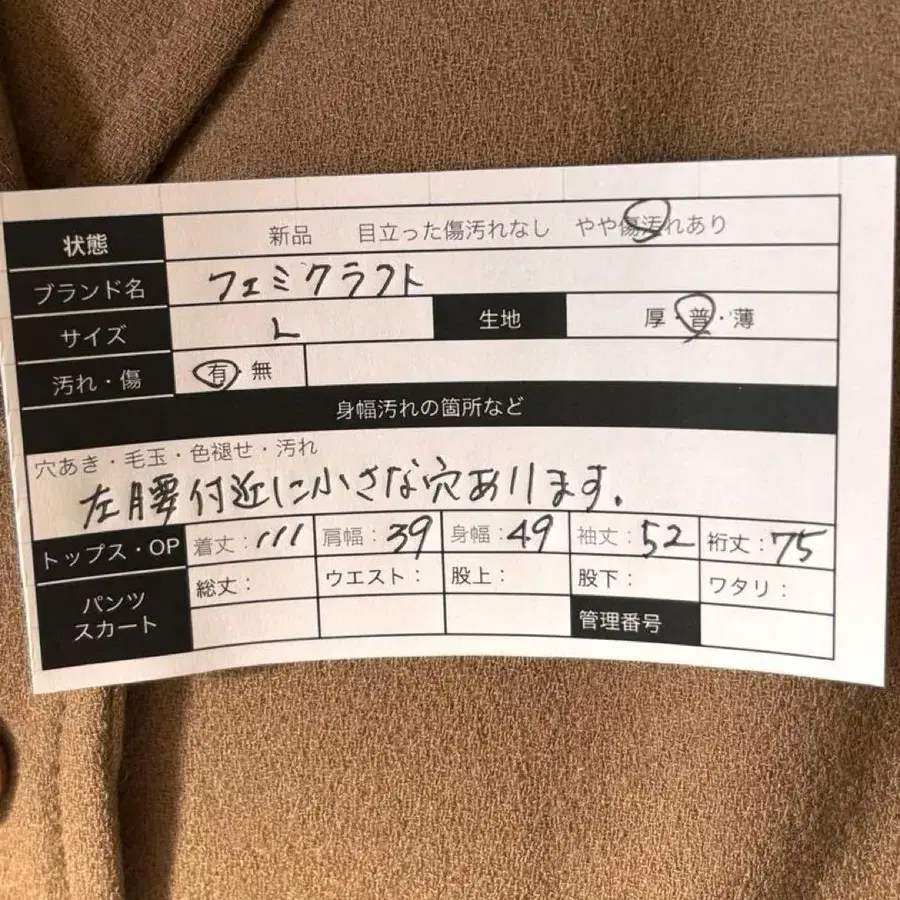 状態 新品 目立った傷汚れなし やや傷汚れあり
ブランド名 フェミクラフト
サイズ L 生地 厚・普・薄
汚れ・傷 有・無
身幅汚れの箇所など
穴あき・毛玉・色褪せ・汚れ
左腰付近に小さな穴あります。
トップス・OP 着丈:111 肩幅:39 身幅:49 袖丈:52 裄丈:75
パンツ スカート 総丈: ウエスト: 股上: 股下: ワタリ:
管理番号